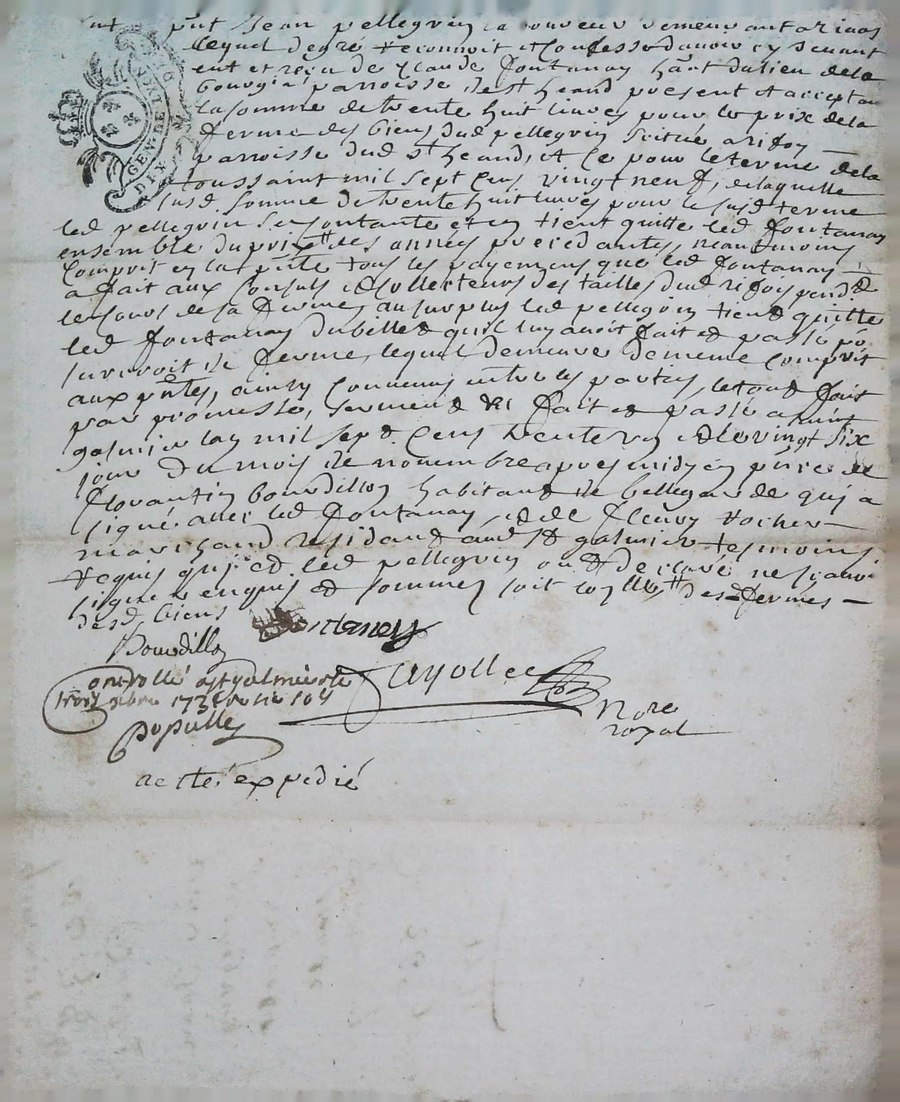 put Jean pellegrin laboureur demeurant a
lequel degre reconnoit et confesse davoir cy devant
eut et reçu de Claude fontanay hant du lieu de la
parroisse de st heand present et acceptan
la somme de trente huit livres pour le prix de la
ferme des biens dud pellegrin scitué a
parroisse dud st heand, et ce pour le terme de la
toussaint mil sept cens vingt neuf, de laquelle
susd somme de trente huit livres pour le susd terme
led pellegrin se contante et en tient quitte led fontanay
ensemble du prix des années precedantes, neantmoins
comprit en la pnte tous les payemens que led fontanay
a fait aux consuls et collecteurs des tailles dud pendt
le cours de sa ferme, au surplus led pellegrin tient quitte
led fontanay du billet quil luy avoit fait et passé po
de ferme, lequel demeure de meme comprit
aux pntes, ainsy convenus entre les parties, le tout fait
par promesse, serment &c fait et passé a saint
galmier lan mil sept cens trente et le vingt six
jour du mois de novembre apres midy en pnce de
florantin bourdillon habitant de bellegarde qui a
signé avec led fontanay, et de fleury rocher
marchand residant aud st galmier tesmoins
requis qui et led pellegrin ont declaré ne scavoir
signer enquis et sommes soit des fermes
desd biens
Bourdillon fontaney
controllé a st galmier le
trois xbre 173
Populle
Nore
royal
acte expedié
GEN. DE